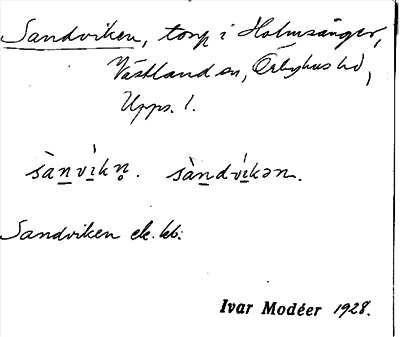 Sandviken, torp i Holmsånger,
Västland sn, Örbyhus hd,
Upps. l.
sànvíkn̥. sàndvíkən.
Sandviken ek. kb.
Ivar Modéer 1928.